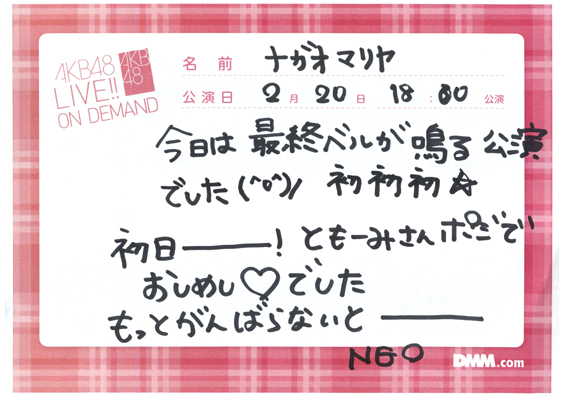 AKB48
LIVE!!
ON DEMAND
AKB
48
名前 ナガオマリヤ
公演日 2月20日 18:00公演
今日は最終ベルが鳴る公演
でした(^o^)/ 初初初☆
初日———! ともーみさんポジで
おしめし♡でした
もっとがんばらないと———
NEO
DMM.com